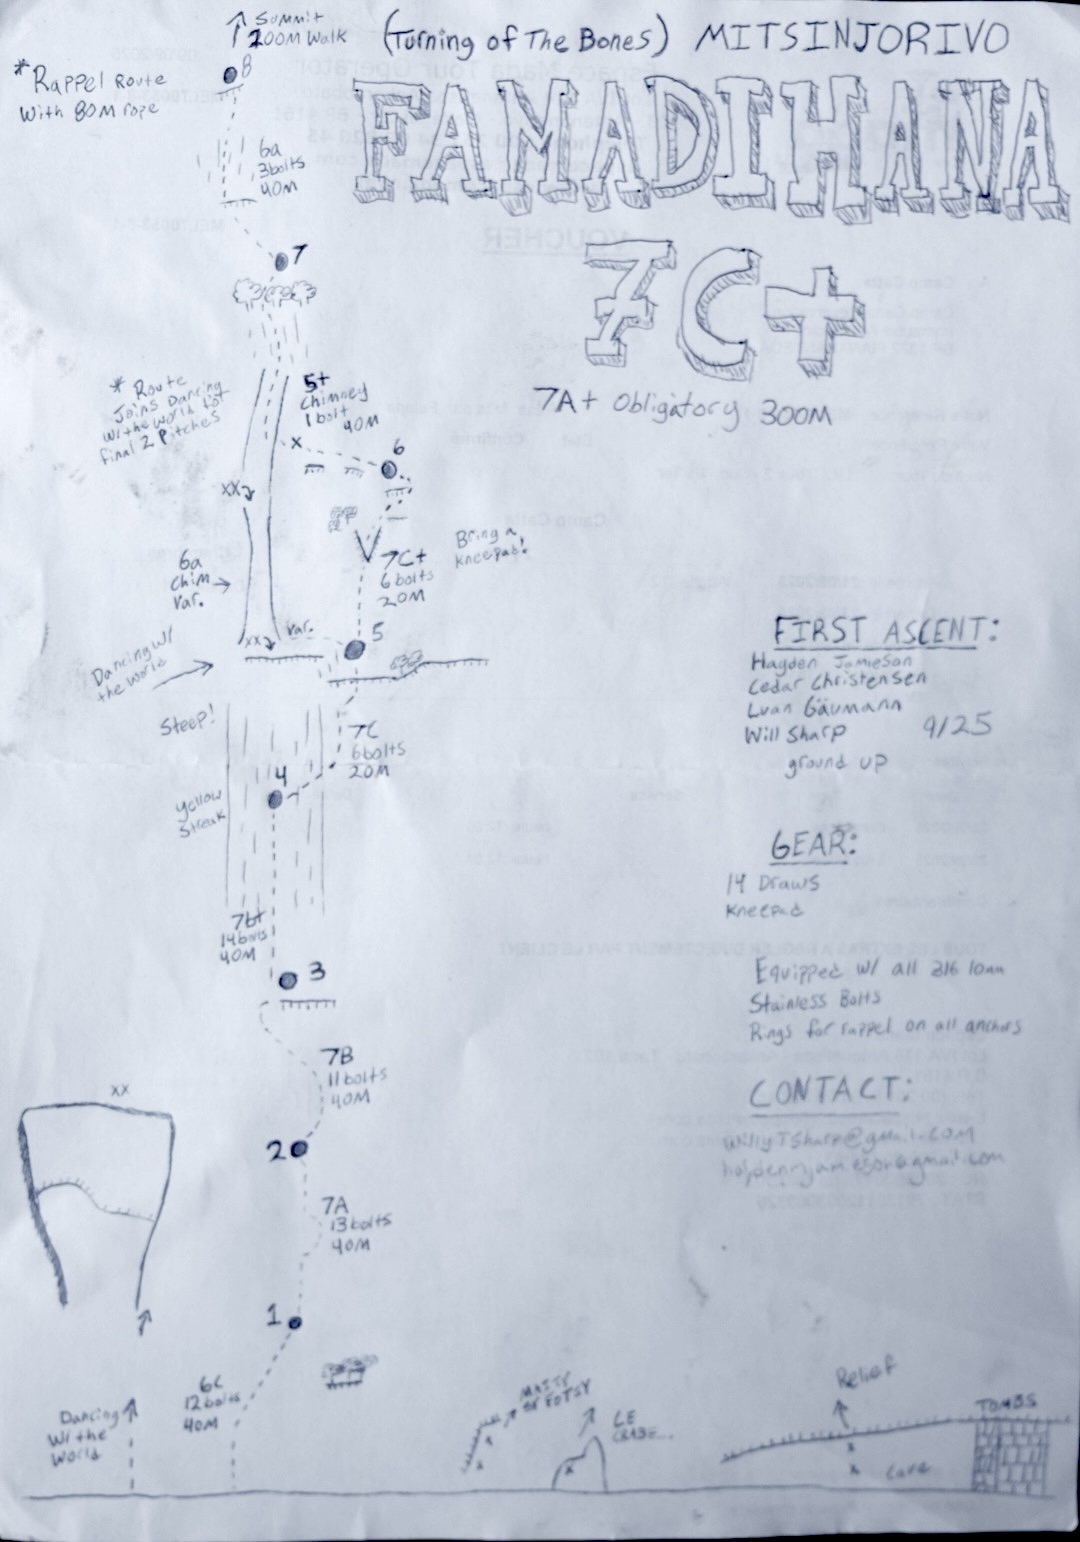 Summit
200M Walk
(Turning of The Bones) MITSINJORIVO
FAMADIHANA
7C+
7A+ Obligatory 300M
8
*Rappel Route
With 80M rope
6a
3bolts
40M
7
* Route
Joins Dancing
w/ the world for
final 2 Pitches
5+
Chimney
1 bolt
40M
x
6
xx
7C+
6 bolts
20M
Bring a
kneepad!
6a
Chim
Var.
xx
Var.
5
Dancing w/
the world
Steep!
7C
6bolts
20M
4
Yellow
Streak
7b+
14bolts
40M
3
7B
11bolts
40M
2
7A
13bolts
40M
xx
1
6c
12bolts
40M
Dancing
W/ the
World
FIRST ASCENT:
Hayden Jamieson
Cedar Christensen
Luan Gäumann
Will Sharp 9/25
ground up
GEAR:
14 Draws
Kneepad
Equipped w/ all 316 10mm
Stainless Bolts
Rings for rappel on all anchors
CONTACT:
WillyTSharp@gmail.com
gmail.com
FOTSY
x
x
LE
CRABE...
x
Relief
x
x
Cave
TOMBS
VOUCHER